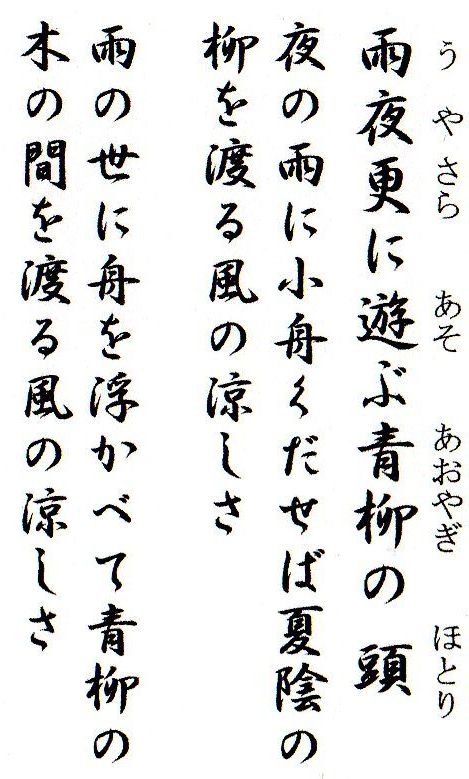 うやさら　あそ　あおやぎ　ほとり
雨夜更に遊ぶ青柳の頭
夜の雨に小舟くだせば夏陰の
柳を渡る風の涼しさ
雨の世に舟を浮かべて青柳の
木の間を渡る風の涼しさ